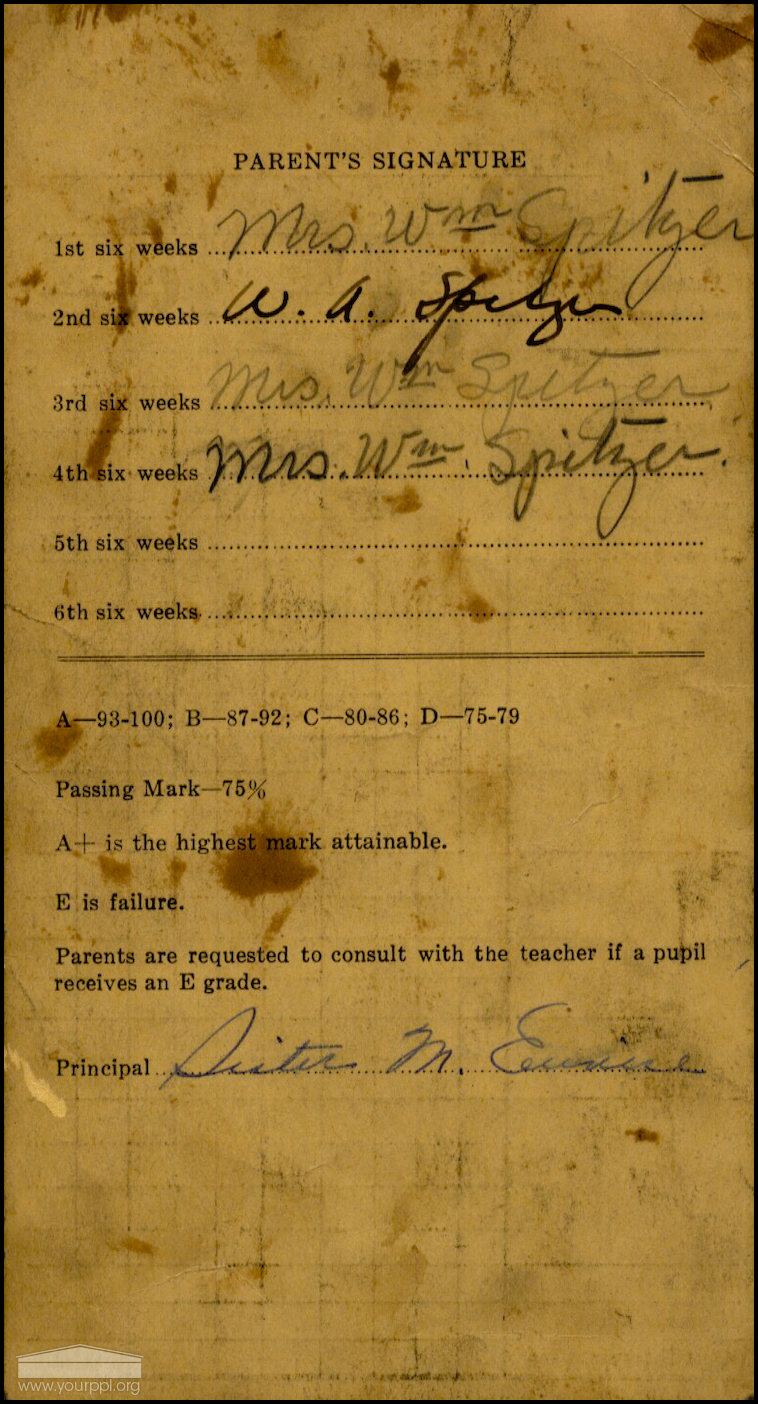 PARENT'S SIGNATURE
1st six weeks Mrs. Wm Spitzer
2nd six weeks W. A. Spitzer
3rd six weeks Mrs. Wm Spitzer
4th six weeks Mrs. Wm. Spitzer.
5th six weeks
6th six weeks
A—93-100; B—87-92; C—80-86; D—75-79
Passing Mark—75%
A+ is the highest mark attainable.
E is failure.
Parents are requested to consult with the teacher if a pupil
receives an E grade.
Principal Sister M.
www.yourppl.org